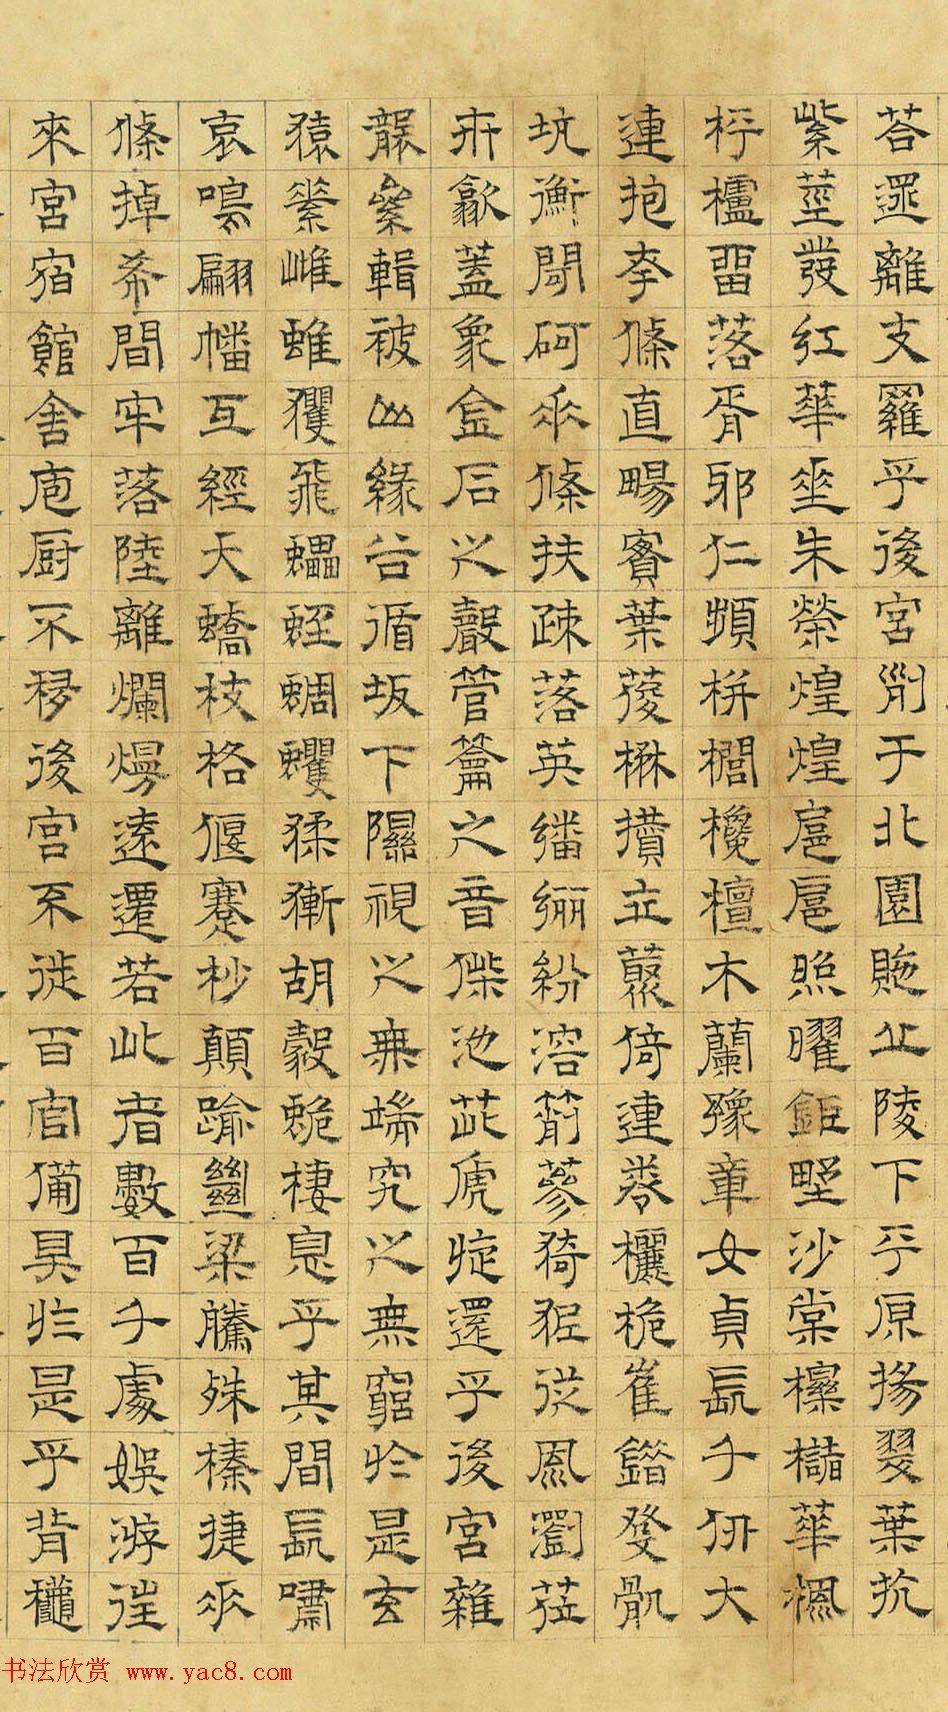 荅遝離支羅乎後宮列于北園貤丘陵下平原揚翠葉抗
紫莖發紅華垂朱榮煌煌扈扈照曜鉅野沙棠櫟櫧華楓
枰櫨留落胥邪仁頻栟櫚欃檀木蘭豫章女貞長千仞大
連抱夸條直暢實葉葰楙攢立叢倚連卷欐佹崔錯癹骫
坑衡閜砢垂條扶疎落英幡纚紛溶箾蔘猗狔從風瀏莅
卉歙蓋象金石之聲管籥之音偨池茈虒旋還乎後宮雜
襲絫輯被山緣谷循坂下隰視之無端究之無窮於是玄
猨素雌蜼玃飛蠝蛭蜩蠷猱獑胡豰蛫棲息乎其間長嘯
哀鳴翩幡互經夭蟜枝格偃蹇杪顛踰絕梁騰殊榛捷垂
條掉希間牢落陸離爛熳遠遷若此者數百千處娛游往
來宮宿館舍庖厨不移後宮不徙百官備具於是乎背龝
书法欣赏 www.yac8.com